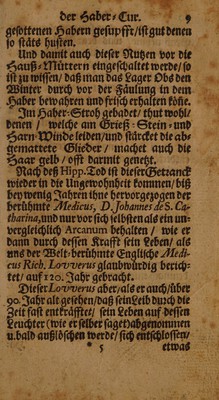 der Haber-Cur. 9
gesottenen Habern gesupfft/ist gut denen
so stäts husten.
Und damit auch dieser Nutzen vor die
Hauß-Müttern eingeschaltet werde/so
ist zu wissen/daß man das Lager Obs den
Winter durch vor der Fäulung in dem
Haber bewahren und frisch erhalten köñe.
Im Haber-Stroh gebadet/ thut wohl/
denen / welche am Grieß-Stein-und
Harn-Winde leiden/und stärcket die ab-
gemattete Glieder/ machet auch die
Haar gelb / offt darmit genetzt.
Nach deß Hipp. Tod ist dieser Getranck
wieder in die Ungewohnheit kommen/biß
bey wenig Jahren ihne hervorgezogen der
berühmte Medicus, D. Johannes de S. Ca-
tharina, und nur vor sich selbsten als ein un-
vergleichlich Arcanum behalten / wie er
dann durch dessen Krafft sein Leben/ als
uns der Welt-berühmte Englische Medi-
cus Rich. Lovverus glaubwürdig berich-
tet/ auf 120. Jahr gebracht.
Dieser Lovverus aber/als er auch/über
90. Jahr alt gesehen/daß sein Leib durch die
Zeit fast entkräfftet/ sein Leben auf dessen
Leuchter (wie er selber saget) abgenommen
u. bald außlöschen werde/ sich entschlossen/
5 etwas